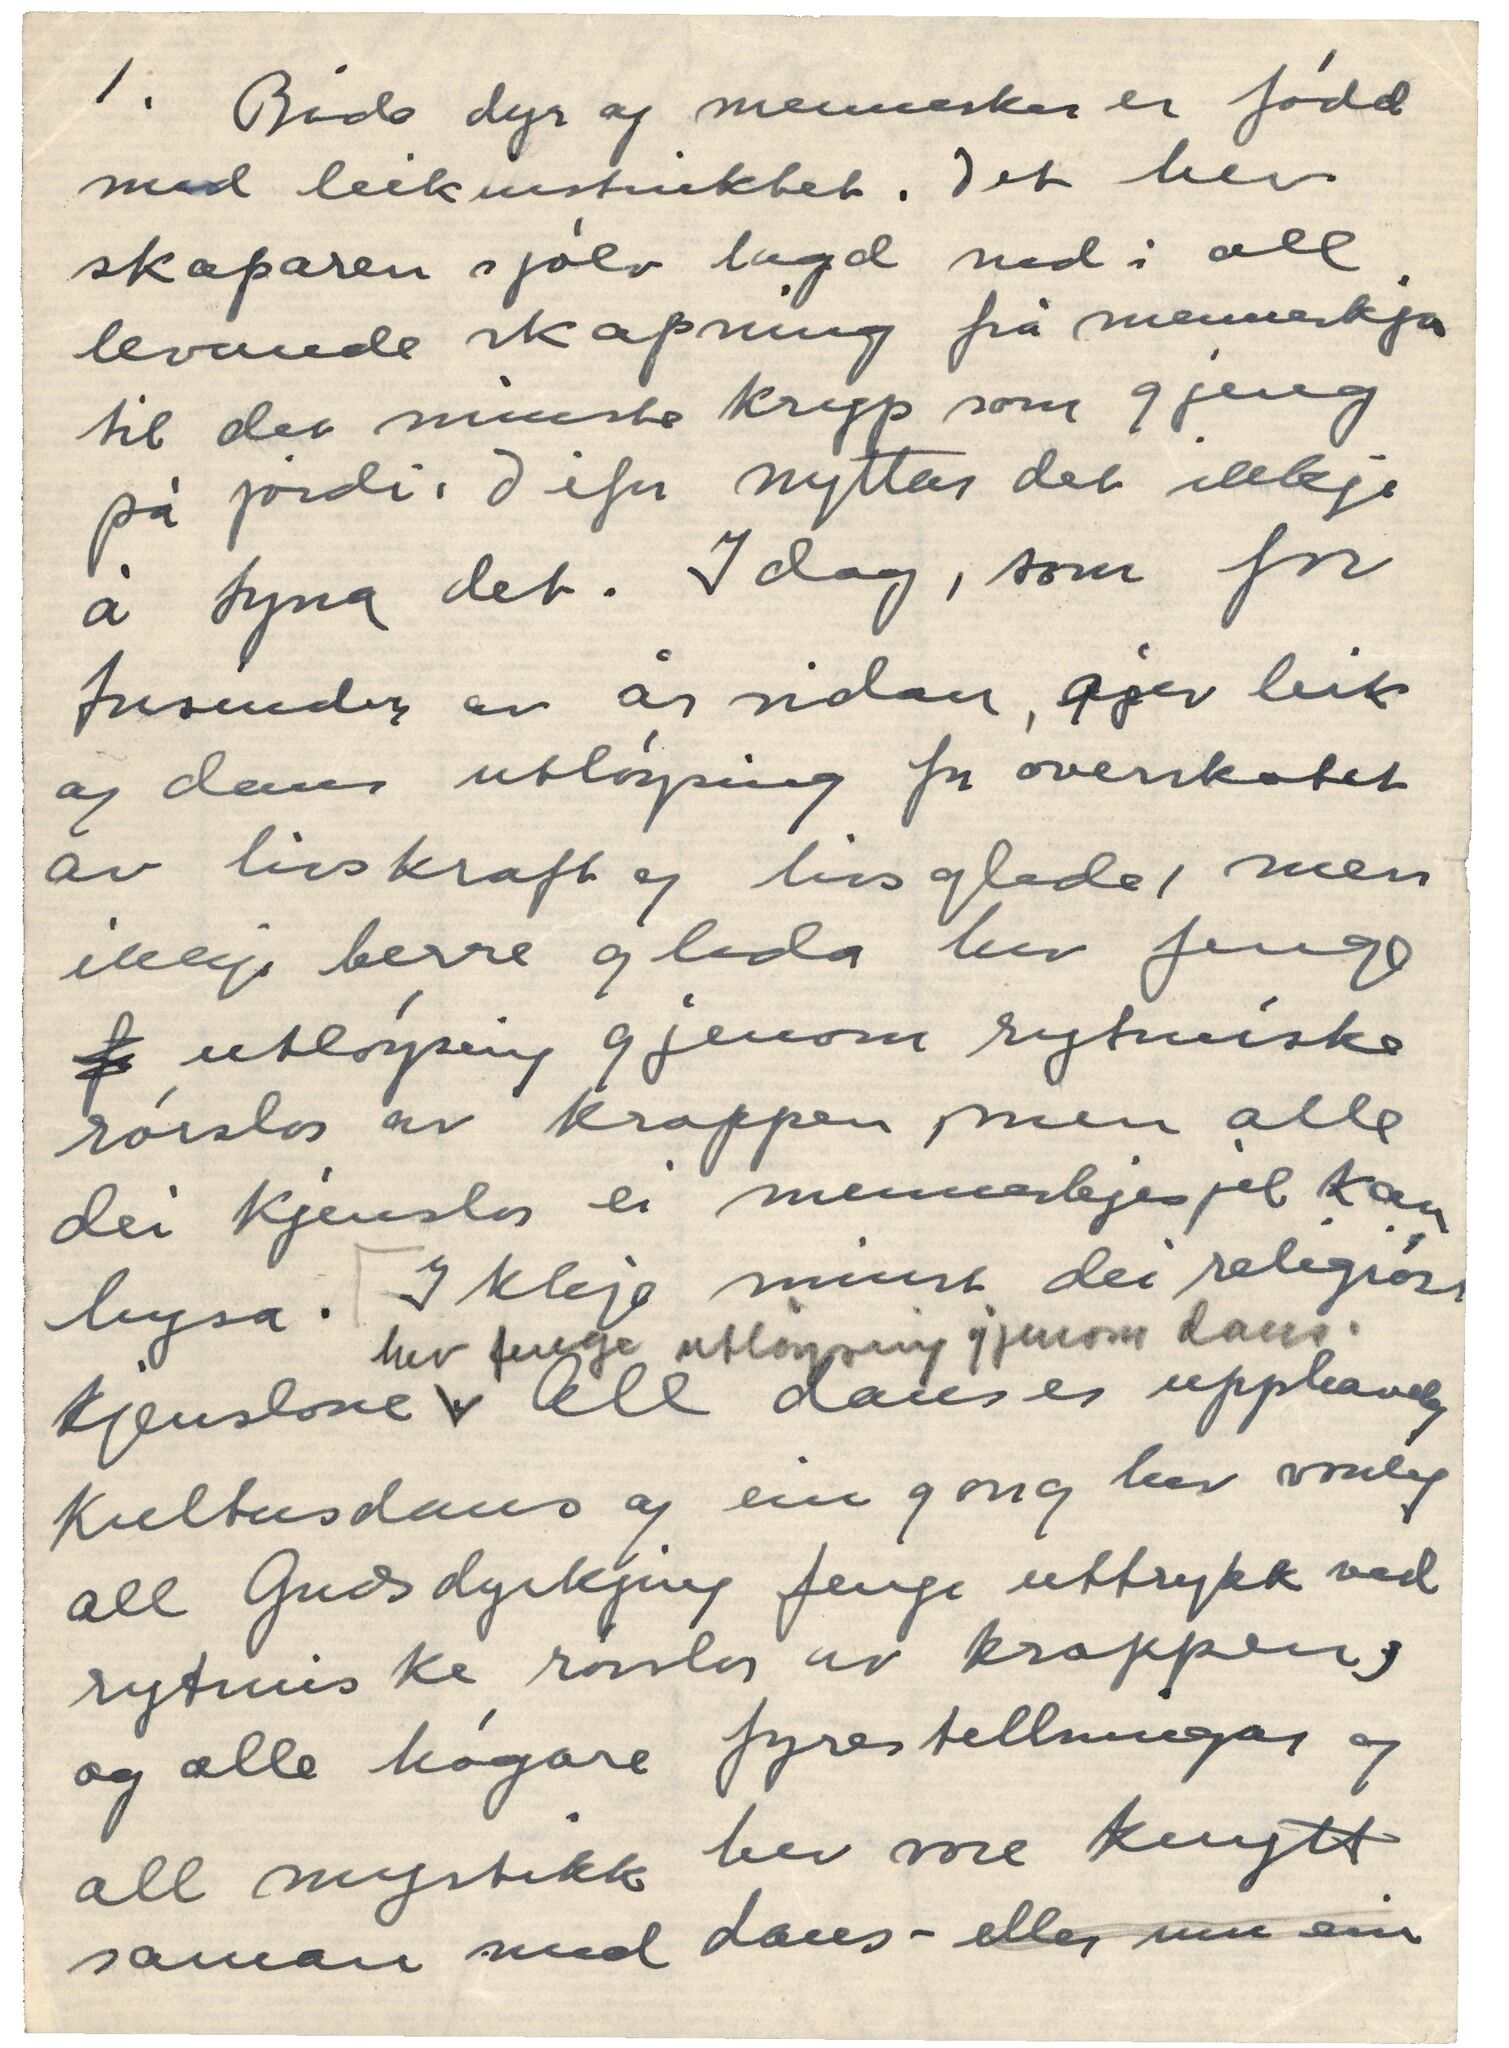 1. Både dyr og mennesker er fódd
med leikinstinktet. Det hev
skaparen sjólv lagd ned i all
levande skapning frå menneskja
til det minste kryp som gjeng
på jordi. Difor nyttar det ikkje
å tyna det. I dag, som for
tusinder av år sidan, gjev leik
og dans utlóysing for overskotet
av livskraft og livsglede, men
ikkje berre gleda hev fenge
utlóysing gjenom rytmiske
rórslor av kroppen, men alle
dei kjenslor ei menneskjesjel kan
hysa. Ikkje minst dei religióse
hev fenge utlóysing gjenom dans.
kjenslone All dans er upphaveleg
kultusdans og ein gong hev vonleg
all Gudsdyrkjing fenge uttrykk ved
rytmiske rórslor av kroppen,
og alle hógare fyrestellningar og
all mystikk hev vore knytt
saman med dans - eller um ein